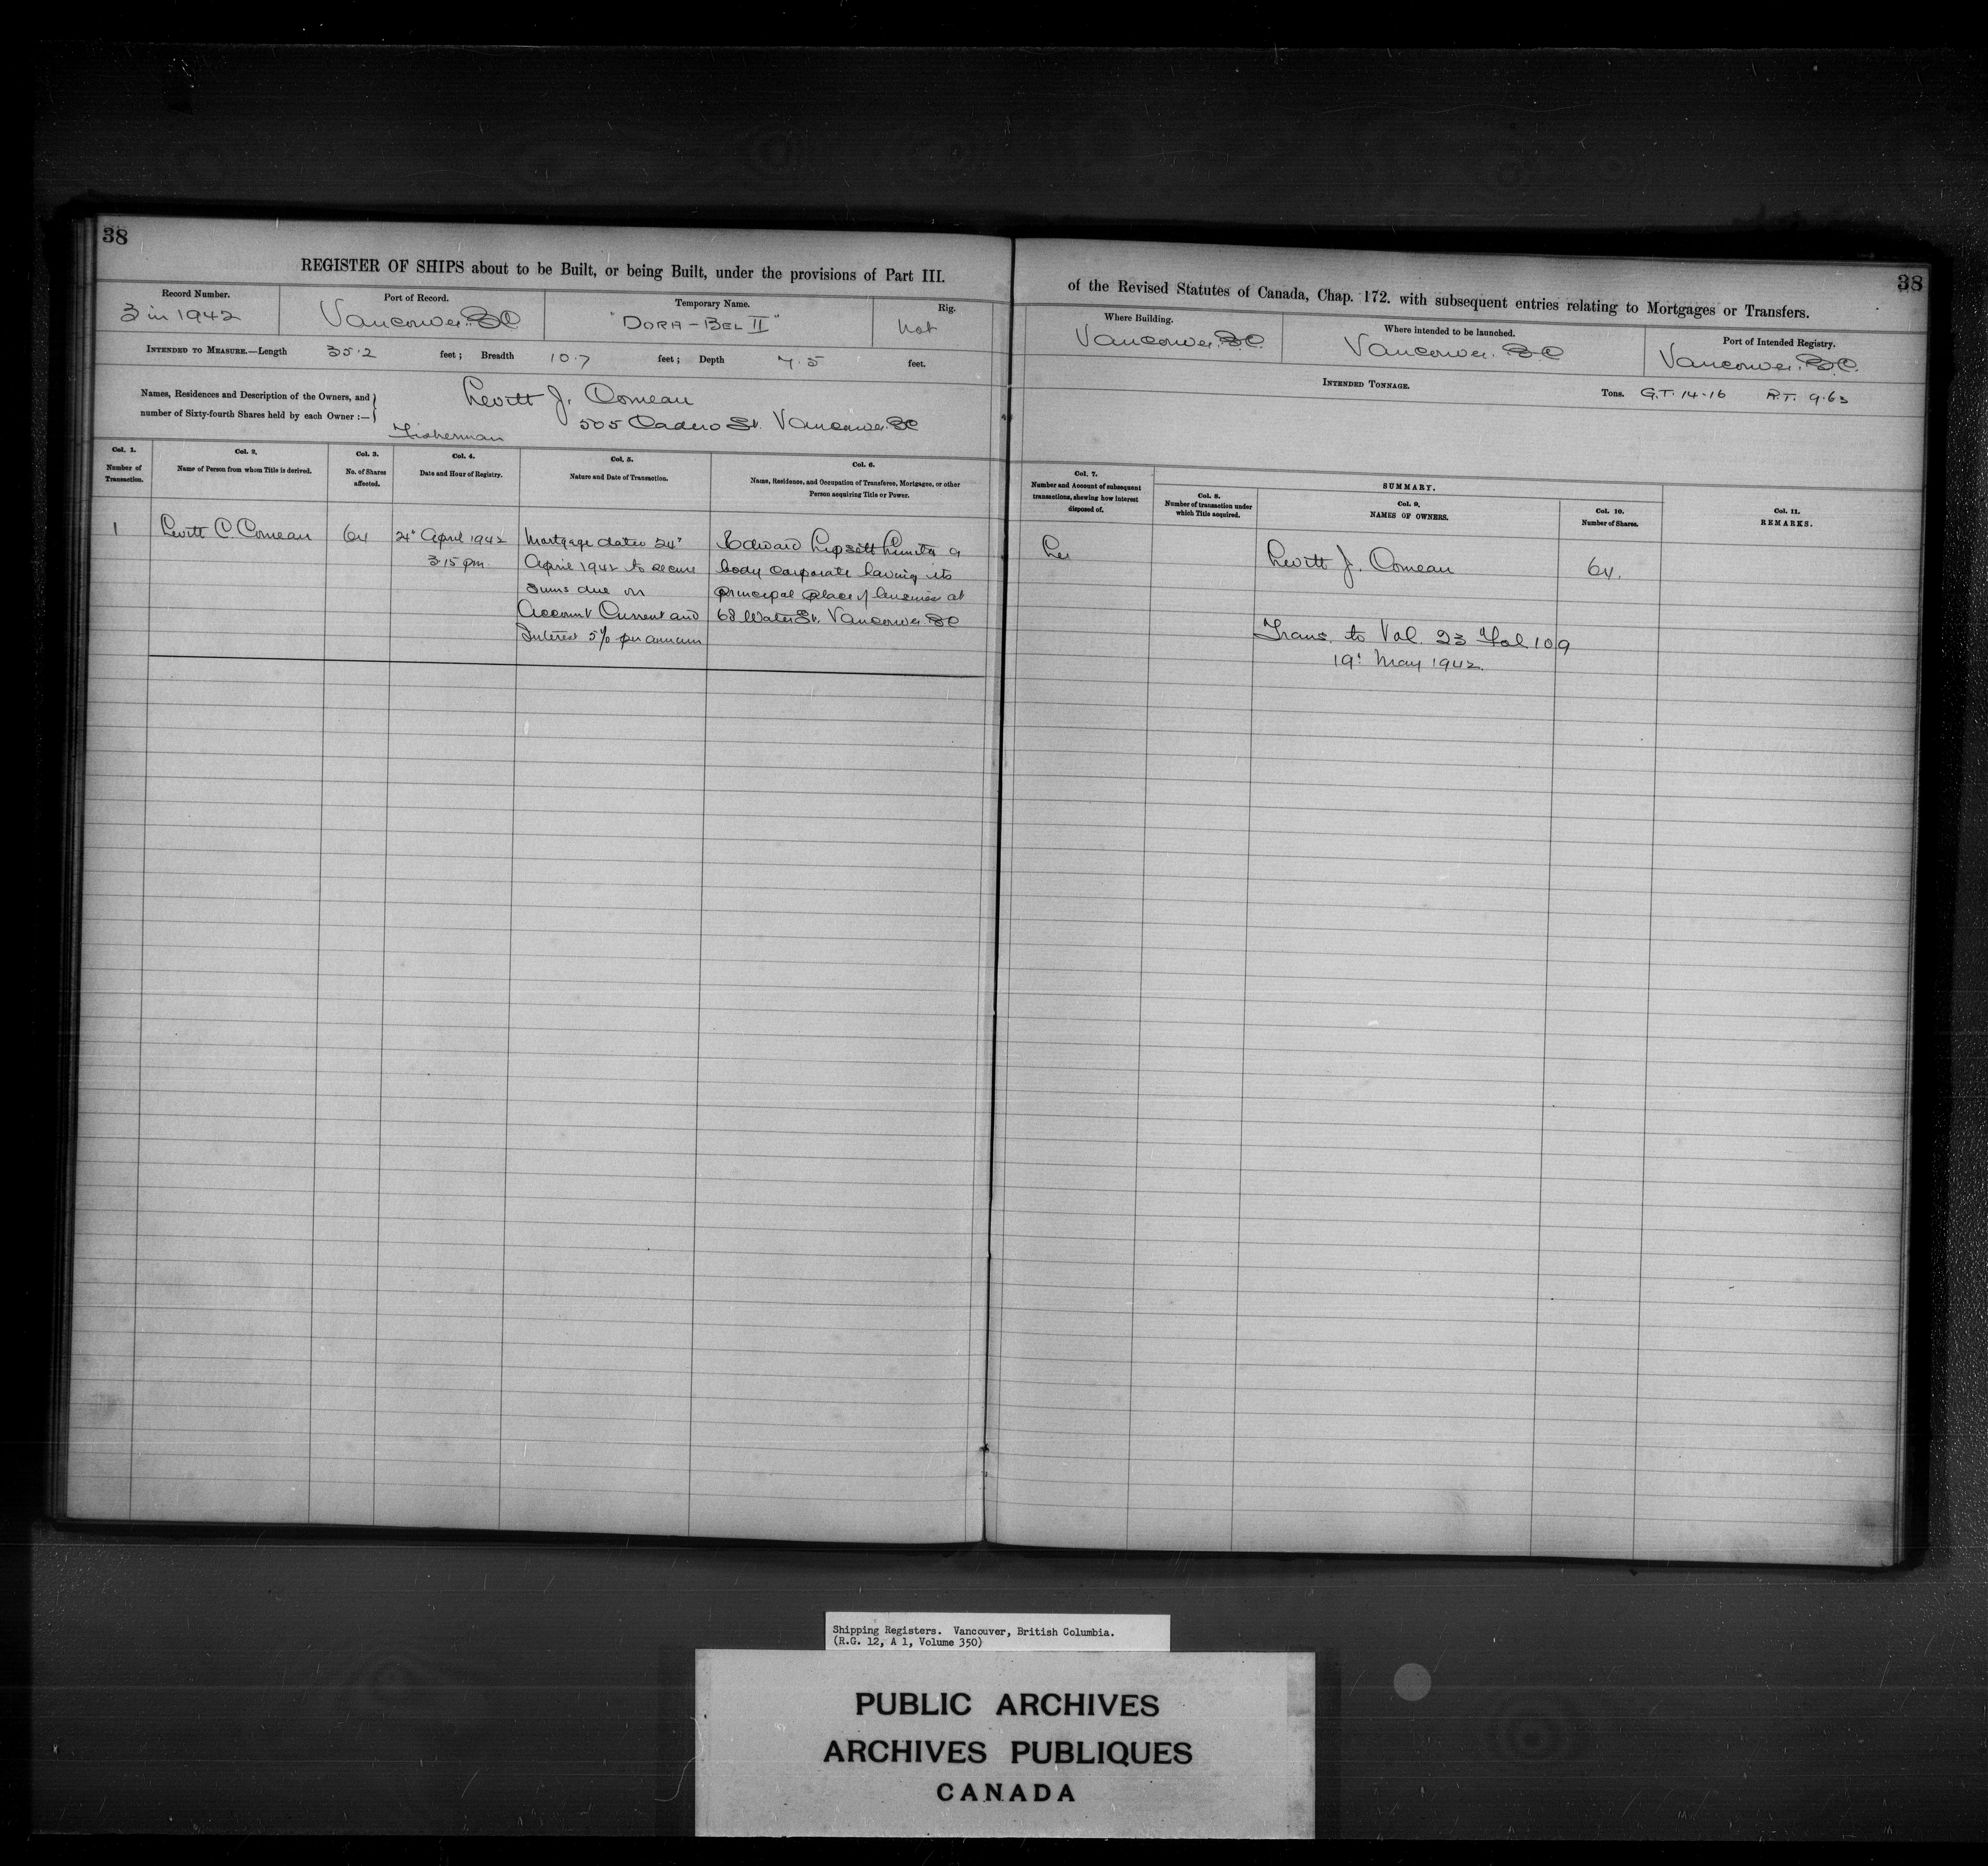 38
REGISTER OF SHIPS about to be Built, or being Built, under the provisions of Part III.
Record Number.
3 in 1942
Port of Record.
Vancouver. BC
Temporary Name.
"DORA-BEL II"
Rig.
Not
INTENDED TO MEASURE.—Length 35.2 feet; Breadth 10.7 feet; Depth 7.5 feet.
Names, Residences and Description of the Owners, and
number of Sixty-fourth Shares held by each Owner :—
Levitt J. Comeau
505 St. Vancouver. BC
Fisherman
Col. 1.
Number of
Transaction.
Col. 2.
Name of Person from whom Title is derived.
Col. 3.
No. of Shares
affected.
Col. 4.
Date and Hour of Registry.
Col. 5.
Nature and Date of Transaction.
Col. 6.
Name, Residence, and Occupation of Transferee, Mortgagee, or other
Person acquiring Title or Power.
1
Levitt C. Comeau
64
April 1942
3.15 pm.
Mortgage dated 24"
April 1942 to secure
sums due on
Account Current and
Interest 5% per annum
Edward Lipsett Limited a
body corporate having its
principal place of business at
68 Water St. Vancouver. BC
38
of the Revised Statutes of Canada, Chap. 172. with subsequent entries relating to Mortgages or Transfers.
Where Building.
Vancouver. B.C.
Where intended to be launched.
Vancouver. BC
Port of Intended Registry.
Vancouver. B.C.
INTENDED TONNAGE.
Tons. G.T. 14.16 R.T. 9.63
Col. 7.
Number and Account of subsequent
transactions, shewing how interest
disposed of.
SUMMARY.
Col. 8.
Number of transaction under
which Title acquired.
Col. 9.
NAMES OF OWNERS.
Col. 10.
Number of Shares.
Col. 11.
REMARKS.
Levitt J. Comeau
64.
Trans. to Vol. 23 Fol 109
19" May 1942.
Shipping Registers. Vancouver, British Columbia.
(R.G. 12, A 1, Volume 350)
PUBLIC ARCHIVES
ARCHIVES PUBLIQUES
CANADA